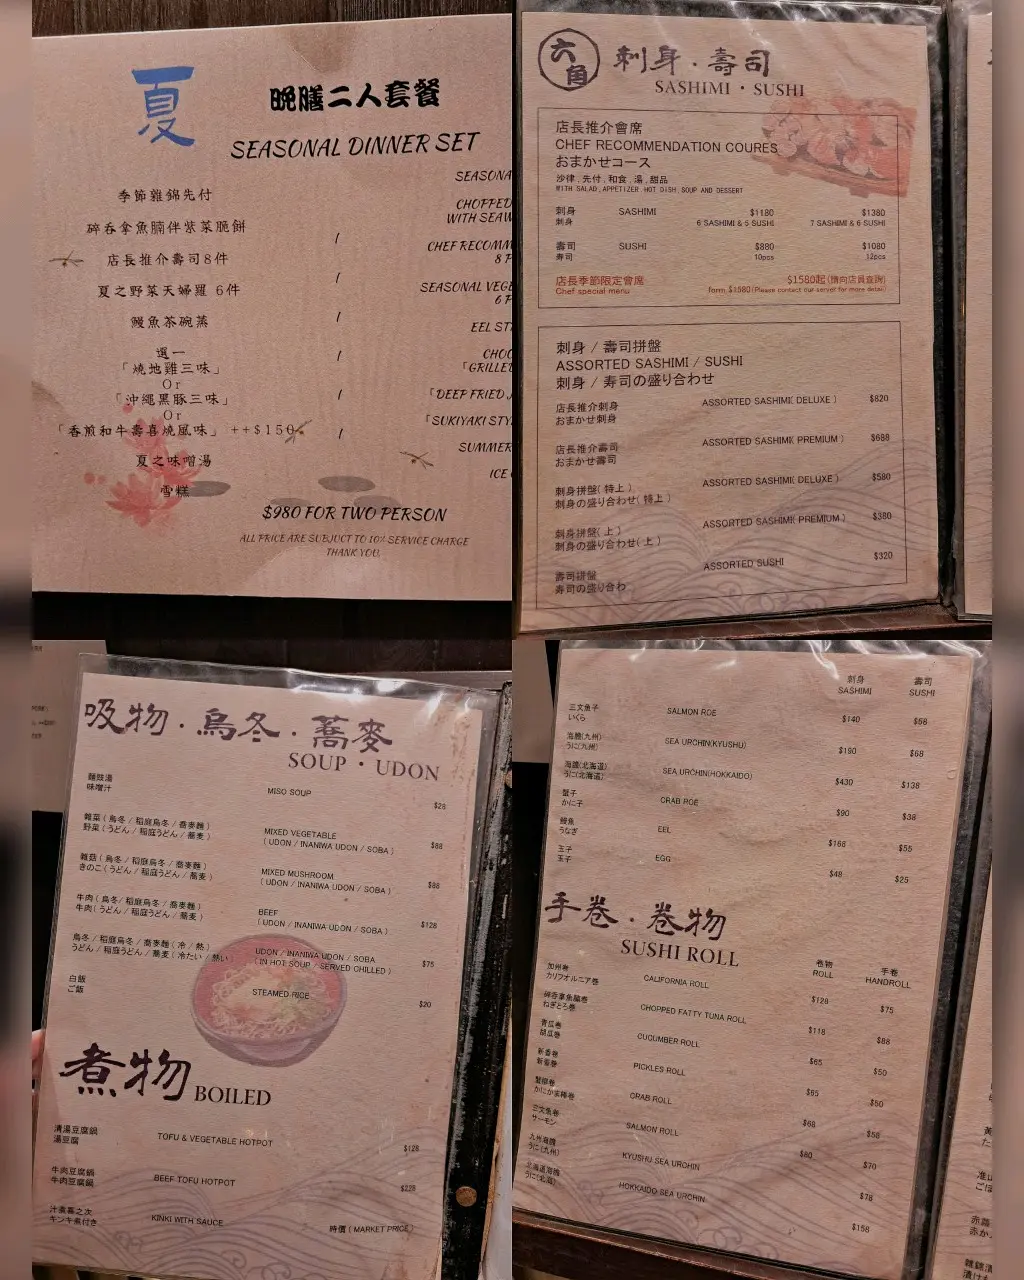 夏
晚膳二人套餐
SEASONAL DINNER SET
季節雜錦先付
SEASONA
碎吞拿魚腩伴紫菜脆餅
/
CHOPPED
WITH SEAW
店長推介壽司8件
/
CHEF RECOMM
8 P
夏之野菜天婦羅 6件
/
SEASONAL VEGE
6 P
鰻魚茶碗蒸
/
EEL ST
選一
/
CHOO
「燒地雞三味」
「GRILLE
Or
「沖繩黑豚三味」
/
「DEEP FRIED
Or
「香煎和牛壽喜燒風味」 ++$150
/
「SUKIYAKI STY
夏之味噌湯
SUMMER
雪糕
ICE
$980 FOR TWO PERSON
ALL PRICE ARE SUBJUCT TO 10% SERVICE CHARGE
THANK YOU.
六角
刺身・壽司
SASHIMI・SUSHI
店長推介會席
CHEF RECOMMENDATION COURES
おまかせコース
沙律 , 先付 , 和食 , 湯 , 甜品
WITH SALAD , APPETIZER , HOT DISH , SOUP AND DESSERT
刺身 SASHIMI $1180 $1380
刺身 6 SASHIMI & 5 SUSHI 7 SASHIMI & 6 SUSHI
壽司 SUSHI $880 $1080
寿司 10pcs 12pcs
店長季節限定會席 $1580起(請向店員查詢)
Chef special menu form $1580(Please contact our server for more detail)
刺身 / 壽司拼盤
ASSORTED SASHIMI / SUSHI
刺身 / 寿司の盛り合わせ
店長推介刺身 ASSORTED SASHIMI( DELUXE ) $820
おまかせ刺身
店長推介壽司 ASSORTED SASHIMI( PREMIUM ) $688
おまかせ壽司
刺身拼盤( 特上 ) ASSORTED SASHIMI( DELUXE ) $580
刺身の盛り合わせ( 特上 )
刺身拼盤( 上 ) ASSORTED SASHIMI( PREMIUM ) $380
刺身の盛り合わせ( 上 )
壽司拼盤 ASSORTED SUSHI $320
寿司の盛り合わ
吸物・烏冬・蕎麥
SOUP・UDON
麵豉湯 MISO SOUP $28
味噌汁
雜菜 ( 烏冬 / 稻庭烏冬 / 蕎麥麵 ) MIXED VEGETABLE $88
野菜 ( うどん / 稲庭うどん / 蕎麦 ) ( UDON / INANIWA UDON / SOBA )
雜菇 ( 烏冬 / 稻庭烏冬 / 蕎麥麵 ) MIXED MUSHROOM $88
きのこ ( うどん / 稲庭うどん / 蕎麦 ) ( UDON / INANIWA UDON / SOBA )
牛肉 ( 烏冬 / 稻庭烏冬 / 蕎麥麵 ) BEEF $128
牛肉 ( うどん / 稲庭うどん / 蕎麦 ) ( UDON / INANIWA UDON / SOBA )
烏冬 / 稻庭烏冬 / 蕎麥麵 ( 冷 / 熱 ) UDON / INANIWA UDON / SOBA $75
うどん / 稲庭うどん / 蕎麦 ( 冷たい / 熱い ) ( IN HOT SOUP / SERVED CHILLED )
白飯 STEAMED RICE $20
ご飯
煮物 BOILED
清湯豆腐鍋 TOFU & VEGETABLE HOTPOT $128
湯豆腐
牛肉豆腐鍋 BEEF TOFU HOTPOT $228
牛肉豆腐鍋
汁煮喜之次 KINKI WITH SAUCE 時價 ( MARKET PRICE )
キンキ煮付き
刺身 壽司
SASHIMI SUSHI
三文魚子 SALMON ROE $140 $58
いくら
海膽(九州) SEA URCHIN(KYUSHU) $190 $68
うに(九州)
海膽(北海道) SEA URCHIN(HOKKAIDO) $430 $138
うに(北海道)
蟹子 CRAB ROE $90 $38
かに子
鰻魚 EEL $168 $55
うなぎ
玉子 EGG $48 $25
玉子
手卷・卷物
SUSHI ROLL
卷物 手卷
ROLL HANDROLL
加州卷 CALIFORNIA ROLL $128 $75
カリフォルニア巻
碎吞拿魚腩卷 CHOPPED FATTY TUNA ROLL $118 $88
ねぎとろ巻
青瓜卷 CUCUMBER ROLL $65 $50
胡瓜巻
新香卷 PICKLES ROLL $85 $50
新香巻
蟹柳卷 CRAB ROLL $68 $58
かにかま棒巻
三文魚卷 SALMON ROLL $80 $70
サーモン
九州海膽 KYUSHU SEA URCHIN $78
うに(九州)
北海道海膽 HOKKAIDO SEA URCHIN $158
うに(北海)